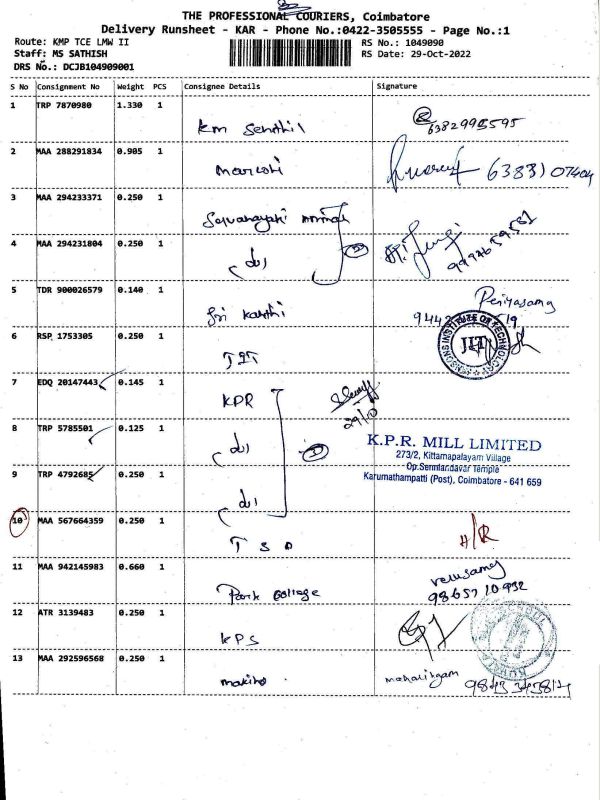 THE PROFESSIONAL COURIERS, Coimbatore
Delivery Runsheet - KAR - Phone No.:0422-3505555 - Page No.:1
Route: KMP TCE LMW II
RS No.: 1049090
Staff: MS SATHISH
RS Date: 29-Oct-2022
DRS No.: DCJB104909001
S No Consignment No Weight PCS Consignee Details Signature
1 TRP 7870980 1.330 1
km Senthil 6382995595
2 MAA 288291834 0.905 1
maruthi
3 MAA 294233371 0.250 1
4 MAA 294231804 0.250 1
5 TDR 900026579 0.140 1
Sri Kanthi Periyasamy
6 RSP 1753305 0.250 1
JIT
INSTITUTE OF TECHNOLOGY
7 EDQ 20147443 0.145 1
KPR 29/10
8 TRP 5785501 0.125 1
K.P.R. MILL LIMITED
273/2, Kittampalayam Village
Op.Semiandavar Temple
Karumathampatti (Post), Coimbatore - 641 659
9 TRP 4792685 0.250 1
10 MAA 567664359 0.250 1
H/R
11 MAA 942145983 0.660 1
Park College velusamy
9865710932
12 ATR 3139483 0.250 1
KPS
13 MAA 292596568 0.250 1
mahalingam